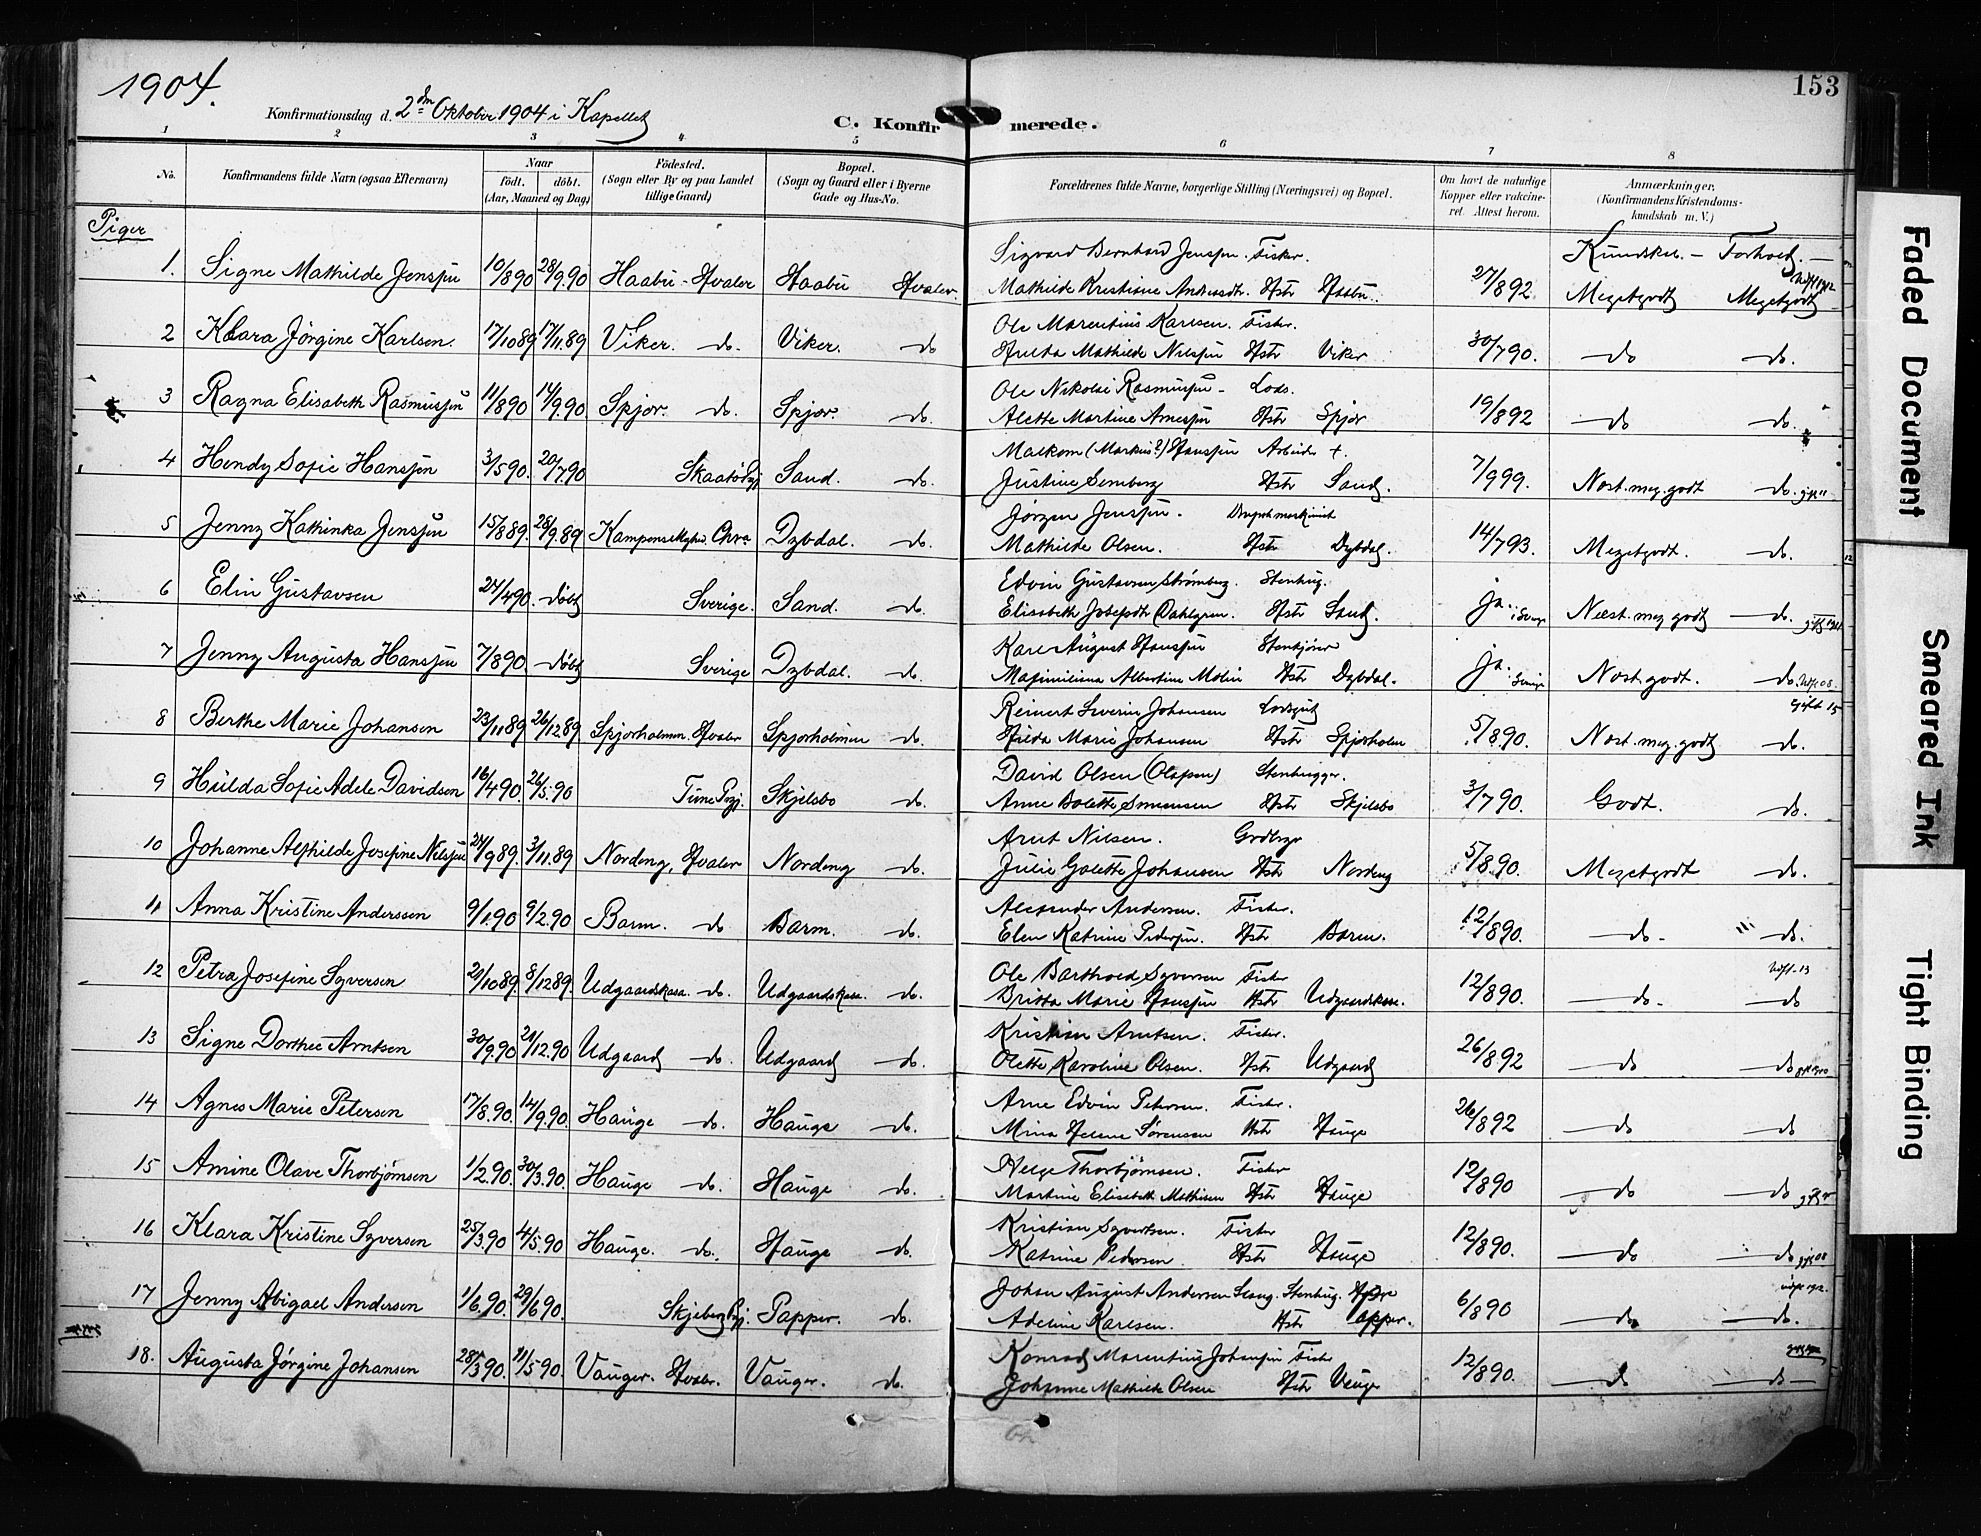 1904.
153
Konfirmationsdag d. 2den Oktober 1904 i Kapellet
C. Konfirmerede.
1 2 3 4 5 6 7 8
No.
Konfirmandens fulde Navn (ogsaa Efternavn)
Naar
født. døbt.
(Aar, Maaned og Dag)
Fødested.
(Sogn eller By og paa Landet tillige Gaard)
Bopæl.
(Sogn og Gaard eller i Byerne Gade og Hus-No.
Forældrenes fulde Navne, borgerlige Stilling (Næringsvei) og Bopæl.
Om havt de naturlige Kopper eller vakcineret. Attest herom.
Anmærkninger.
(Konfirmandens Kristendomskundskab m. V.)
Piger
Kundskab. - Forhold. -
1. Signe Mathilde Jensen 10/8 90 28/9 90 Haabu - Hvaler Haabu Hvaler. Sigvard Bernhard Jensen. Fisker.
Mathilde Kristiane Andreasdtr. Hstr Haabu. 27/8 92 Megetgodt Megetgodt
2 Klara Jørgine Karlsen. 17/10 89 17/11 89 Viker. do. Viker. do Ole Marentius Karlsen. Fisker.
Hulda Mathilde Nilsen Hstr Viker 30/7 90. do do.
3 Ragna Elisabeth Rasmussen 11/8 90 14/9 90 Spjær. do. Spjær. do. Ole Nikolai Rasmussen - Lods.
Alette Martine Arnesen Hstr Spjær 19/8 92 do do.
4 Hendy Sofie Hansen 3/5 90. 20/7 90 Skaatø Pgj Sand. do. Malkom (Markus?) Hansen Arbeider +.
Justine Semberg Hstr Sand. 7/9 99. Næst. meg. godt do.
5 Jenny Kathinka Jensen 15/8 89. 28/9 89 Kampens Mgh. Chra Dybdal. do. Jørgen Jensen. Dampskmaskinist
Mathilde Olsen. Hstr Dybdal. 14/7 93. Megetgodt. do.
6 Elin Gustavsen 24/4 90. døbt Sverige. Sand. do. Edvin Gustavsen Strømberg. Stenhug.
Elisabeth Josefsdtr Dahlgren. Hstr Sand. ja. i Sverige Næst. meg godt do.
7 Jenny Augusta Hansen 7/8 90. døbt Sverige Dybdal. do. Karl August Hansen Stenkjører
Maximiliana Albertine Molin Hstr Dybdal. ja. Sverige Næst godt. do.
8 Berthe Marie Johansen 23/11 89 26/12 89. Spjærholmen. Hvaler Spjærholmen do. Reinert Severin Johansen Lodsgut
Hilda Marie Johansen Hstr Spjærholm 5/8 90. Næst. meg. godt do. Gift 15
9 Hulda Sofie Adele Davidsen 16/4 90. 26/5 90 Tune Pgj. Skjelsbo do. David Olsen (Olafsen) Stenhugger.
Anne Bolette Simensen Hstr Skjelsbo 3/7 90. Godt. do.
10 Johanne Alfhilde Josefine Nilsen 24/9 89. 3/11 89 Nordeng, Hvaler Nordeng do. Arnt Nilsen. Grdbrgr
Julie Galette Johansen Hstr Nordeng 5/8 90. Megetgodt do.
11 Anna Kristine Anderssen 9/1 90 9/2 90 Barm. do Barm. do. Alexander Andersen. Fisker.
Elen Katrine Pedersen. Hstr Barm. 12/8 90. do. do.
12 Petra Josefine Syversen 21/10 89. 8/12 89 Udgaardskasa. do. Udgaardskasa. do. Ole Barthold Syversen Fisker
Britha Marie Hansen Hstr Udgaardskasa. 12/8 90. do. do
13 Signe Dorthee Arntsen 30/9 90 21/12 90 Udgaard do. Udgaard do. Kristian Arntsen. Fisker.
Olette Karoline Olsen. Hstr Udgaard 26/8 92 do do
14 Agnes Marie Petersen 17/8 90. 14/9 90. Hauge do. Hauge do. Arne Edvin Petersen. Fisker.
Mina Helene Sørensen Hstr Hauge 26/8 92 do do
15 Amine Olave Thorbjørnsen 1/2 90. 30/3 90. Hauge do. Hauge do. Helge Thorbjørnsen. Fisker
Martine Elisabeth Mathisen Hstr Hauge 12/8 90 do do
16 Klara Kristine Syversen 25/3 90 4/5 90 Hauge. do. Hauge do. Kristian Syvertsen. Fisker
Katrine Pedersen. Hstr Hauge 12/8 90. do do
17 Jenny Abigael Andersen 1/6 90. 29/6 90. Skjeberg Pgj. Papper. do. Johan August Andersen Slang. Stenhug.
Adeline Karlsen. Hstr Papper. 6/8 90 do do.
18. Augusta Jørgine Johansen 28/3 90. 11/5 90. Vauger. Hvaler. Vauger. do. Konrad Marentius Johansen Fisker
Johanne Mathilde Olsen Hstr Vauger 12/8 90. do do
Faded Document
Smeared Ink
Tight Binding